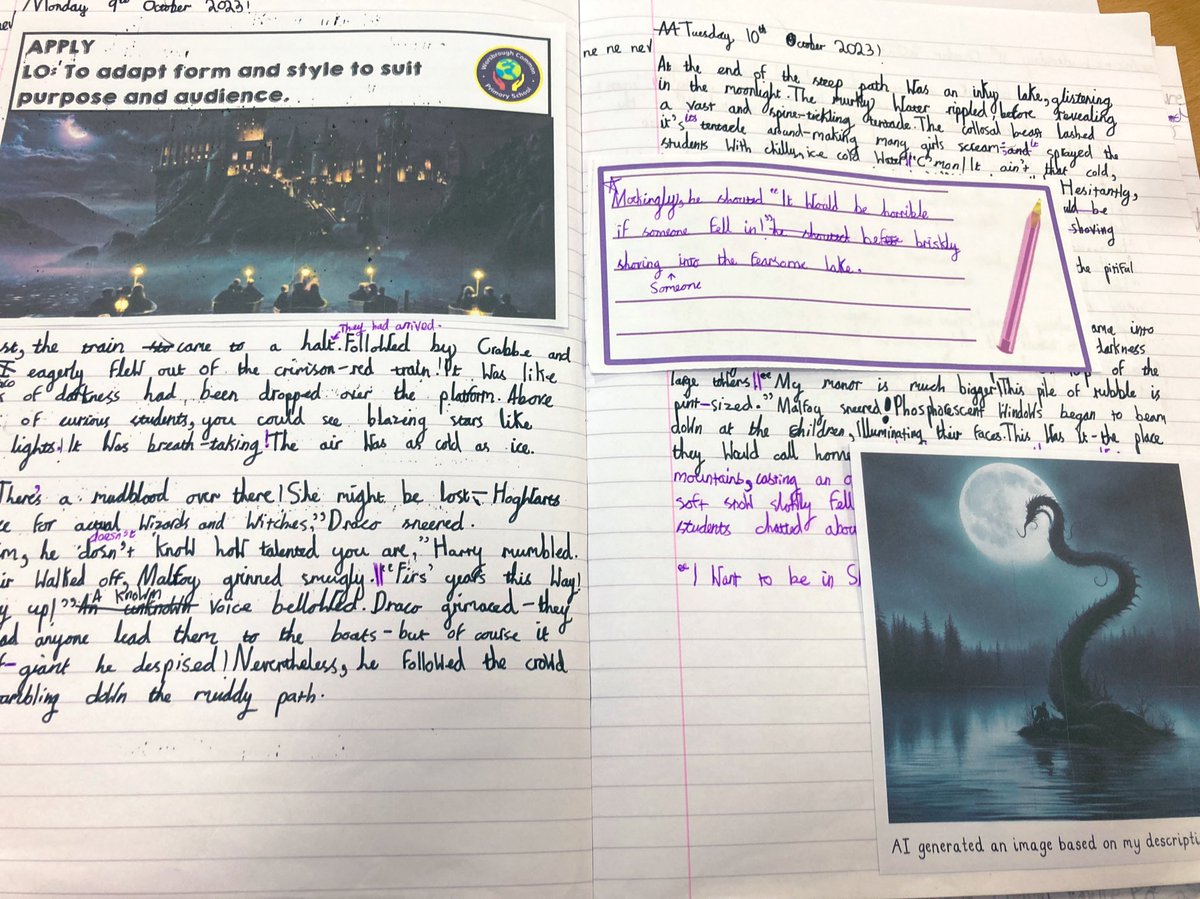 Monday 9th October 2023!
APPLY
LO: To adapt form and style to suit
purpose and audience.
Worsbrough Common
Primary School
They had arrived.
the train came to a halt. Followed by Crabbe and
eagerly flew out of the crimison-red train! It was like
of darkness had been dropped over the platform. Above
of curious students, you could see blazing stars like
lights! It was breath-taking! The air was as cold as ice.
There's a mudblood over there! She might be lost - Hoghwarts
for actual Wizards and Witches," Draco sneered.
doesn't
he dosn't know how talented you are," Harry mumbled.
walked off, Malfoy grinned smugly. "Firs' years this way!
up!" A known An unknown voice bellowed. Draco grimaced - they
anyone lead them to the boats - but of course it
giant he despised! Nevertheless, he followed the crowd
down the muddy path.
ne ne nev
Tuesday 10th October 2023)
At the end of the steep path was an inky lake, glistening
in the moonlight. The murky water rippled before revealing
a vast and spine-tickling tentacle. The collosal beast lashed
it's its tentacle around - making many girls scream - and it sprayed the
students with chilly, ice cold water! "C'mon! It ain't that cold,
Hesitantly,
be
shoving
Mockingly, he shouted "It would be horrible
if someone fell in!" he shouted before briskly
shoving into the fearsome lake.
Someone
the pitiful
into
darkness
of the
large towers! "My manor is much bigger! This pile of rubble is
pint-sized." Malfoy sneered! Phosphorescent windows began to beam
down at the children, illuminating their faces. This was it - the place
they would call
mountains, casting an
soft snow slowly fell
students chatted
"I want to be in
AI generated an image based on my descripti